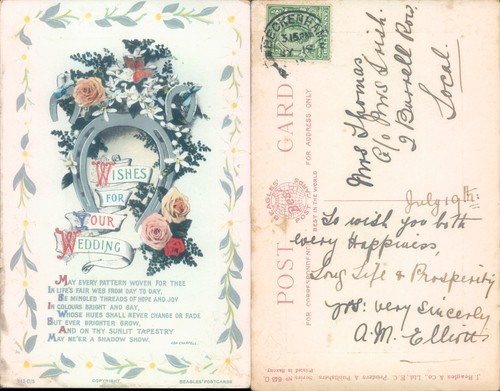 WISHES
FOR
YOUR
WEDDING
MAY EVERY PATTERN WOVEN FOR THEE
IN LIFE'S FAIR WEB FROM DAY TO DAY,
BE MINGLED THREADS OF HOPE AND JOY
IN COLOURS BRIGHT AND GAY,
WHOSE HUES SHALL NEVER CHANGE OR FADE
BUT EVER BRIGHTER GROW,
AND ON THY SUNLIT TAPESTRY
MAY NE'ER A SHADOW SHOW.
COPYRIGHT
BEAGLES' POSTCARDS
BECKENHAM
3.15 PM
POST CARD
FOR ADDRESS ONLY
BEST IN THE WORLD
BEAGLES
POST
Mrs Thomas,
c/o Mrs Irish.
2 Burrell Row,
Local.
July 19th:
To wish you both
every Happiness,
Long Life & Prosperity
Yrs: very sincerely
A.M. Elliott
J. Beagles & Co., Ltd., E.C. Printers & Publishers